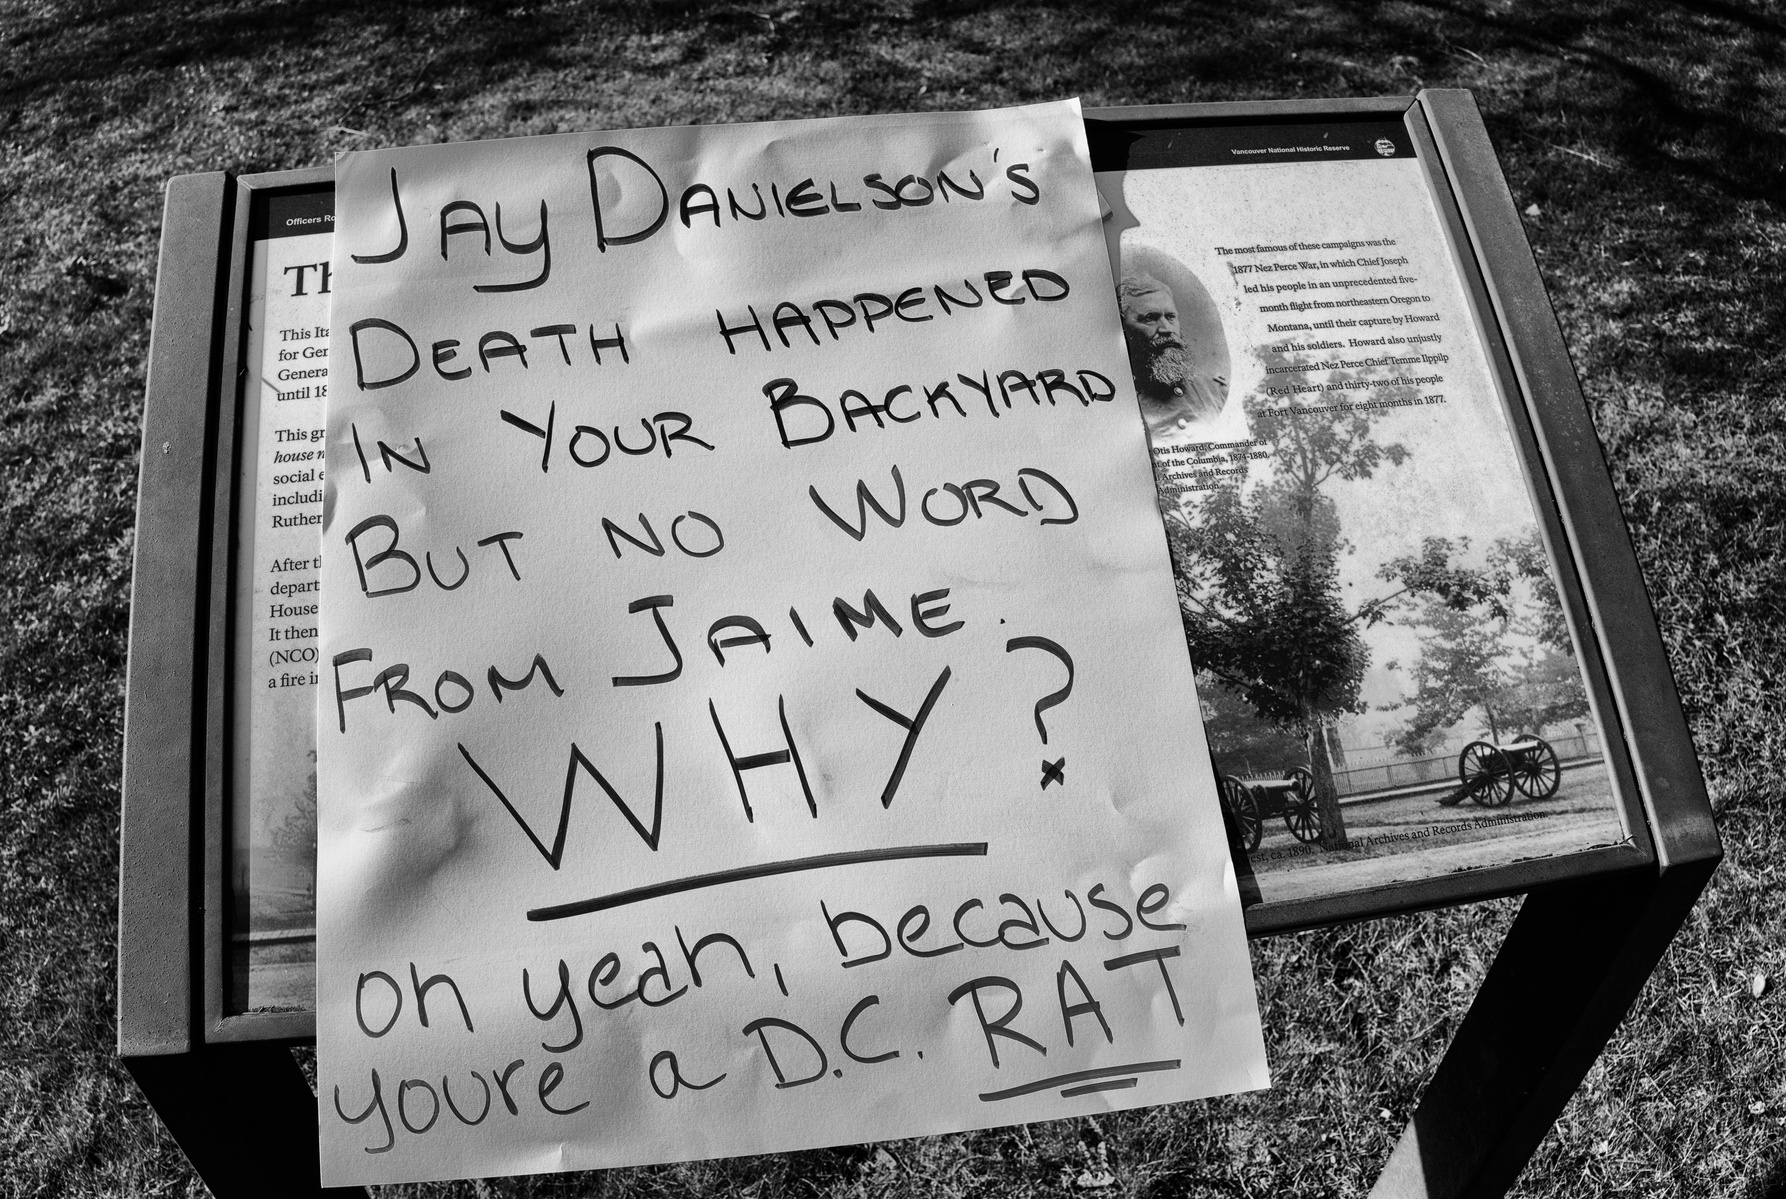 JAY DANIELSON'S
DEATH HAPPENED
IN YOUR BACKYARD
BUT NO WORD
FROM JAIME.
WHY?
oh yeah, because
youre a D.C. RAT
Officers
Th
This
for Gen
Genera
until 18
This gr
house
social
includi
Ruther
After t
depart
House
It then
(NCO)
a fire i
Vancouver National Historic Reserve
The most famous of these campaigns was the
1877 Nez Perce War, in which Chief Joseph
led his people in an unprecedented five-
month flight from northeastern Oregon to
Montana, until their capture by Howard
and his soldiers. Howard also unjustly
incarcerated Nez Perce Chief Temme Ilppilp
(Red Heart) and thirty-two of his people
at Fort Vancouver for eight months in 1877.
Otis Howard, Commander of
of the Columbia, 1874-1880,
Archives and Records
Administration
est, ca. 1890, National Archives and Records Administration